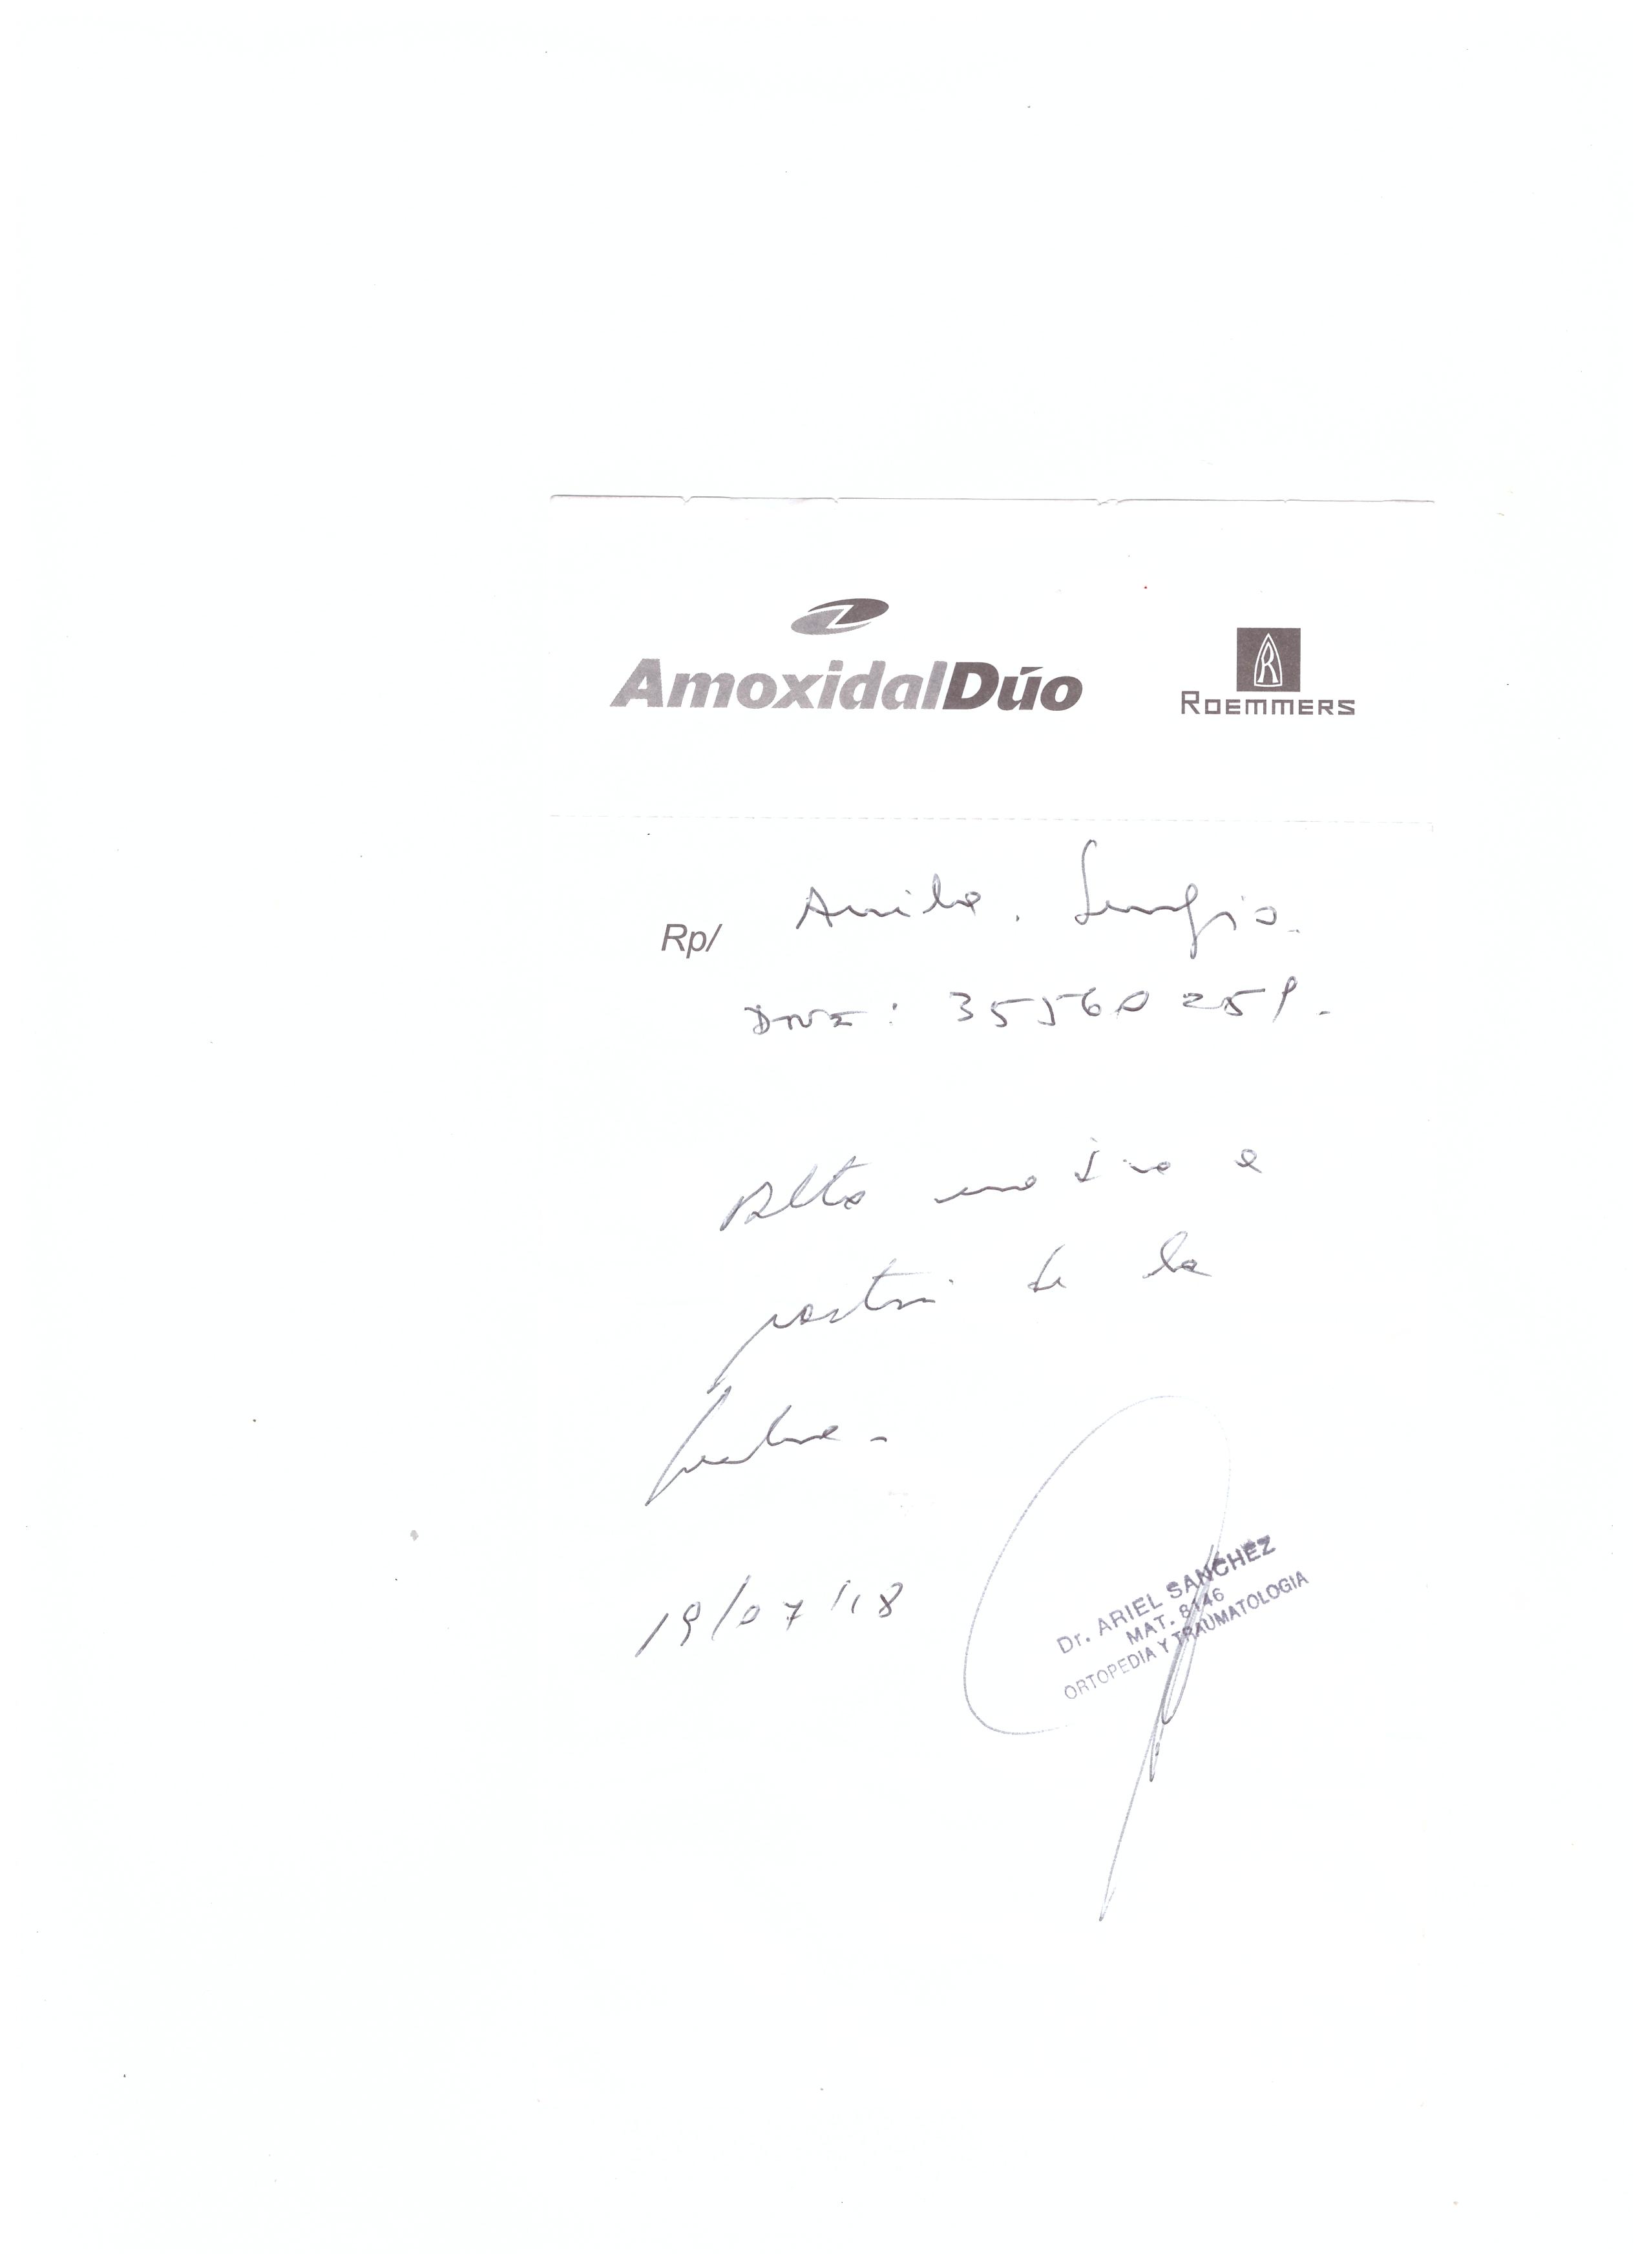 AmoxidalDúo
ROEMMERS
Rp/
Sergio.
DNI: 35
Alta a
partir de la
fecha.-
19/07/18
Dr. ARIEL SANCHEZ
MAT. 8146
ORTOPEDIA Y TRAUMATOLOGIA